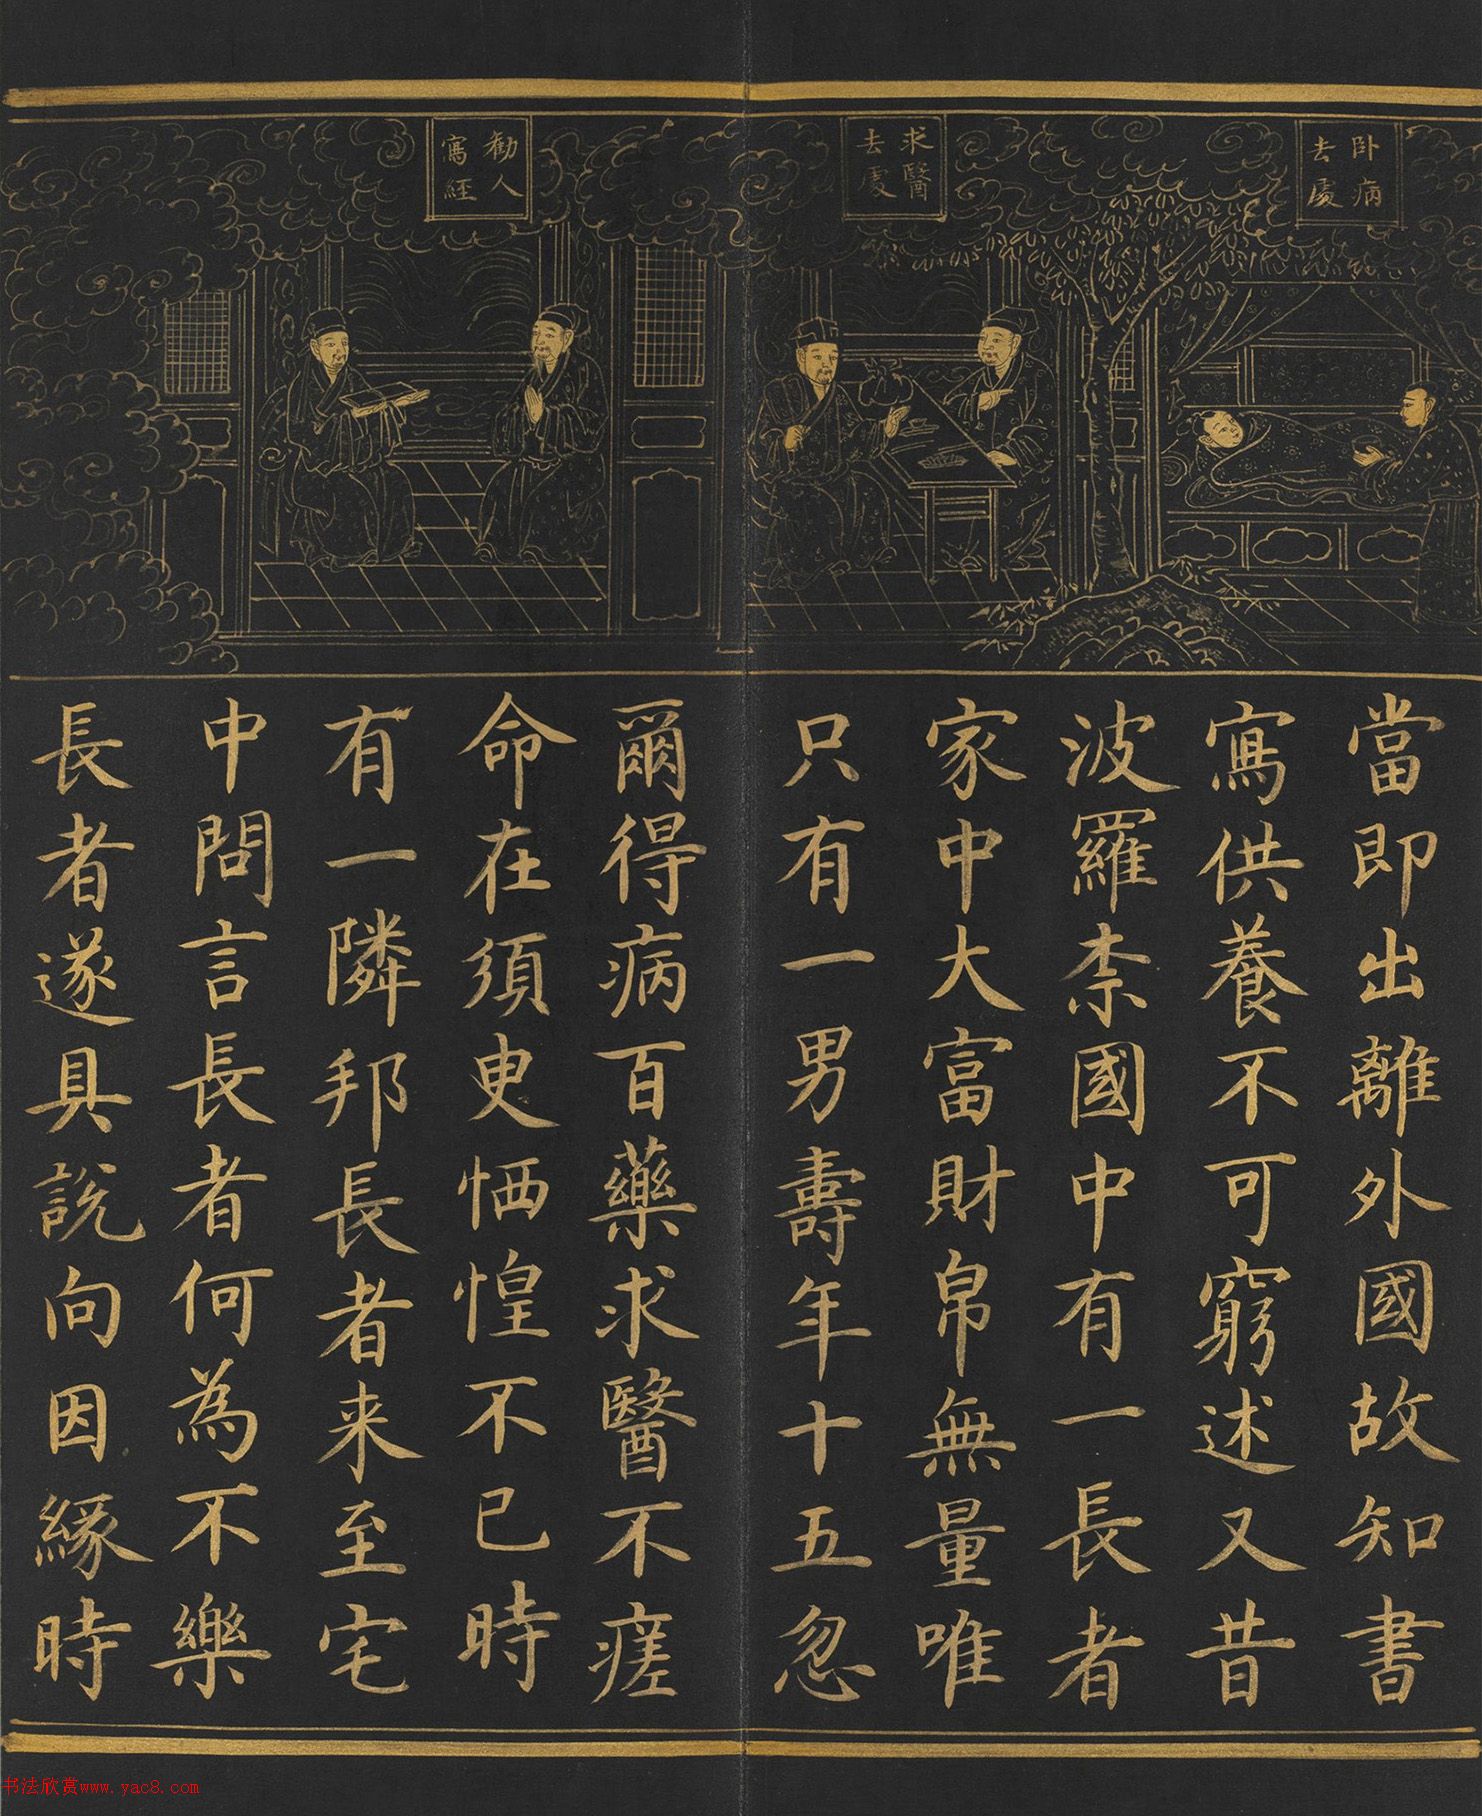 卧病
去處
求醫
去處
勸人
寫經
當即出離外國故知書
寫供養不可窮述又昔
波羅柰國中有一長者
家中大富財帛無量唯
只有一男壽年十五忽
爾得病百藥求醫不瘥
命在須臾恓惶不已時
有一隣邦長者来至宅
中問言長者何為不樂
長者遂具說向因緣時
书法欣赏www.yac8.com